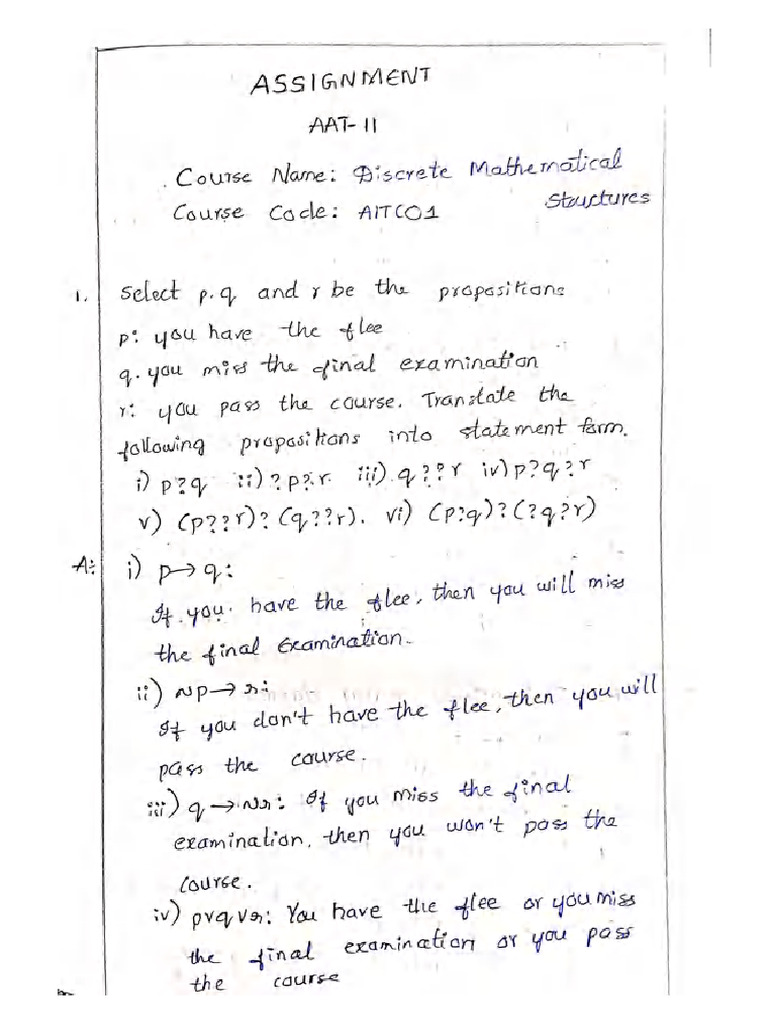 ASSIGNMENT
AAT-II
Course Name: Discrete Mathematical
Structures
Course Code: AITC01
1. Select p.q and r be the propositions
p: you have the flee
q. you miss the final examination
r: you pass the course. Translate the
following propositions into statement form.
i) p?q ii) ?p?r iii) q??r iv) p?q?r
v) (p??r)?(q??r). vi) (p?q)?(?q?r)
A: i) p→q:
If you have the flee, then you will miss
the final Examination.
ii) ~p→r:
If you don't have the flee, then you will
pass the course.
iii) q→~r: If you miss the final
examination, then you won't pass the
course.
iv) p∨q∨r: You have the flee or you miss
the final examination or you pass
the course